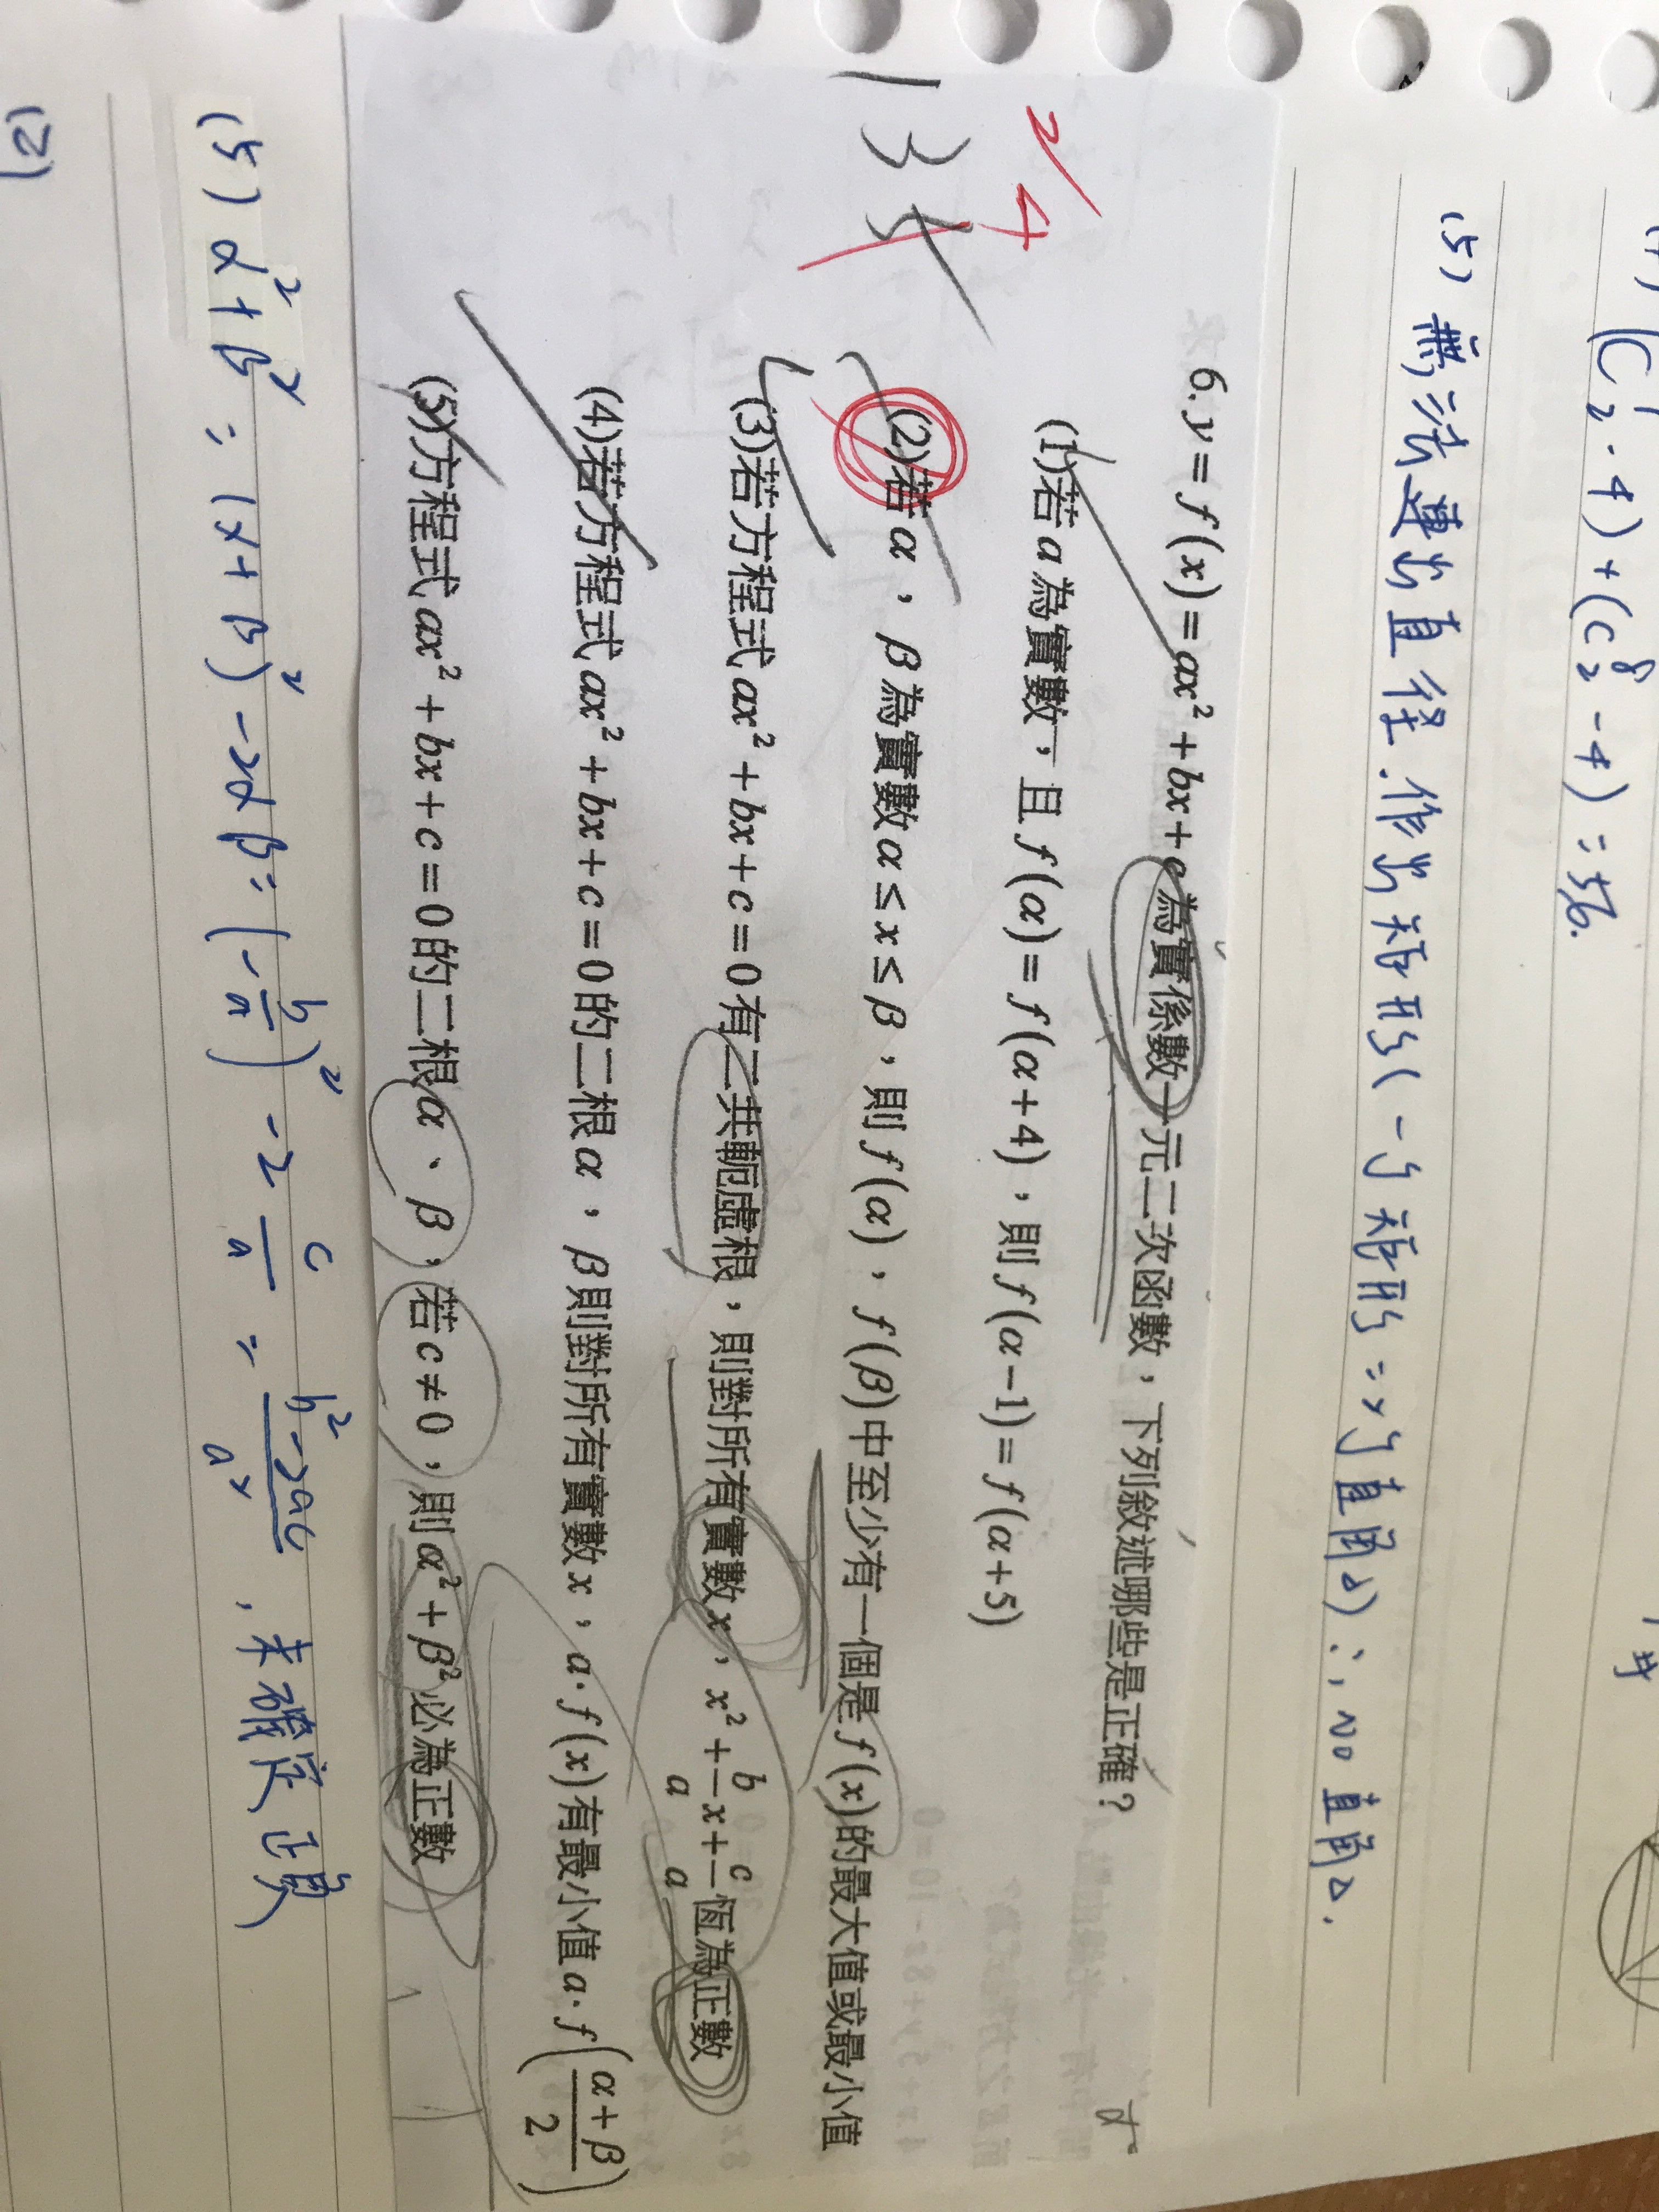 (C₂¹·4)+(C₂⁸-4)=56.
(5) 無法連出直徑.作出矩形(一ㄢ矩形=>ㄢ直角△)∴NO直角△.
2/4
1 3 5
6. y = f(x) = ax² + bx + c 為實係數一元二次函數，下列敘述哪些是正確？
(1)若 a 為實數，且 f(α) = f(α+4)，則 f(α−1) = f(α+5)
(2)若 α，β 為實數 α ≤ x ≤ β，則 f(α)，f(β) 中至少有一個是 f(x) 的最大值或最小值
(3)若方程式 ax² + bx + c = 0 有二共軛虛根，則對所有實數 x，x² + b/a x + c/a 恆為正數
(4)若方程式 ax² + bx + c = 0 的二根 α，β 則對所有實數 x，a·f(x) 有最小值 a·f((α+β)/2)
(5)方程式 ax² + bx + c = 0 的二根 α、β，若 c ≠ 0，則 α² + β² 必為正數
(5) α²+β² = (α+β)²-2αβ = (-b/a)² -2 c/a = (b²-2ac)/a² , 未確定正負
(2)